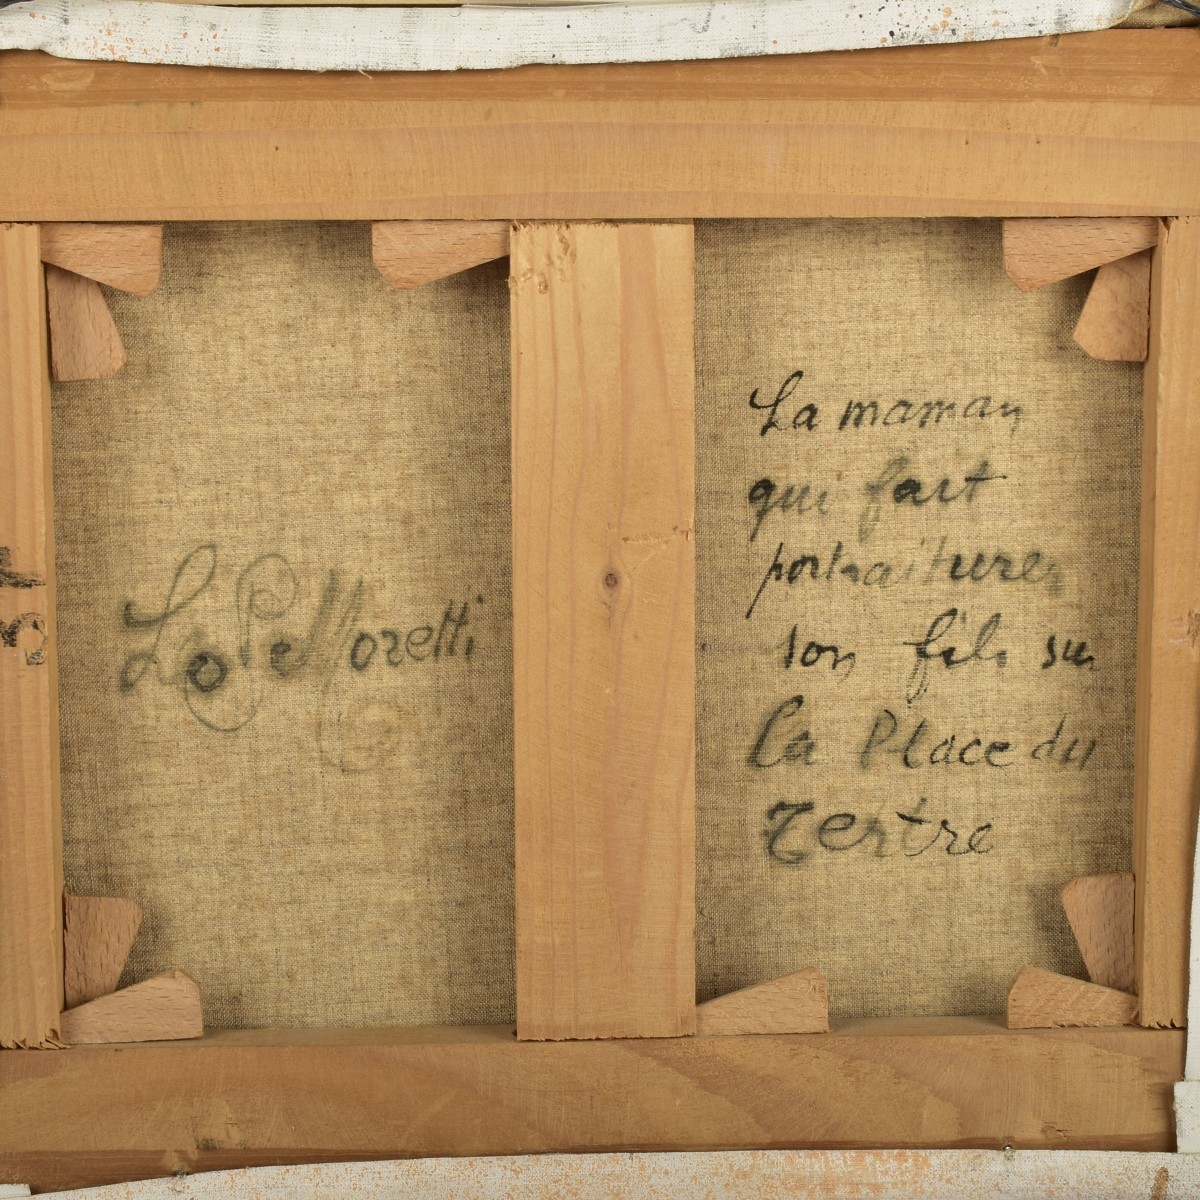 Lo Pe Moretti
La maman
qui fait
portraiturer
son fils sur
la Place du
Tertre